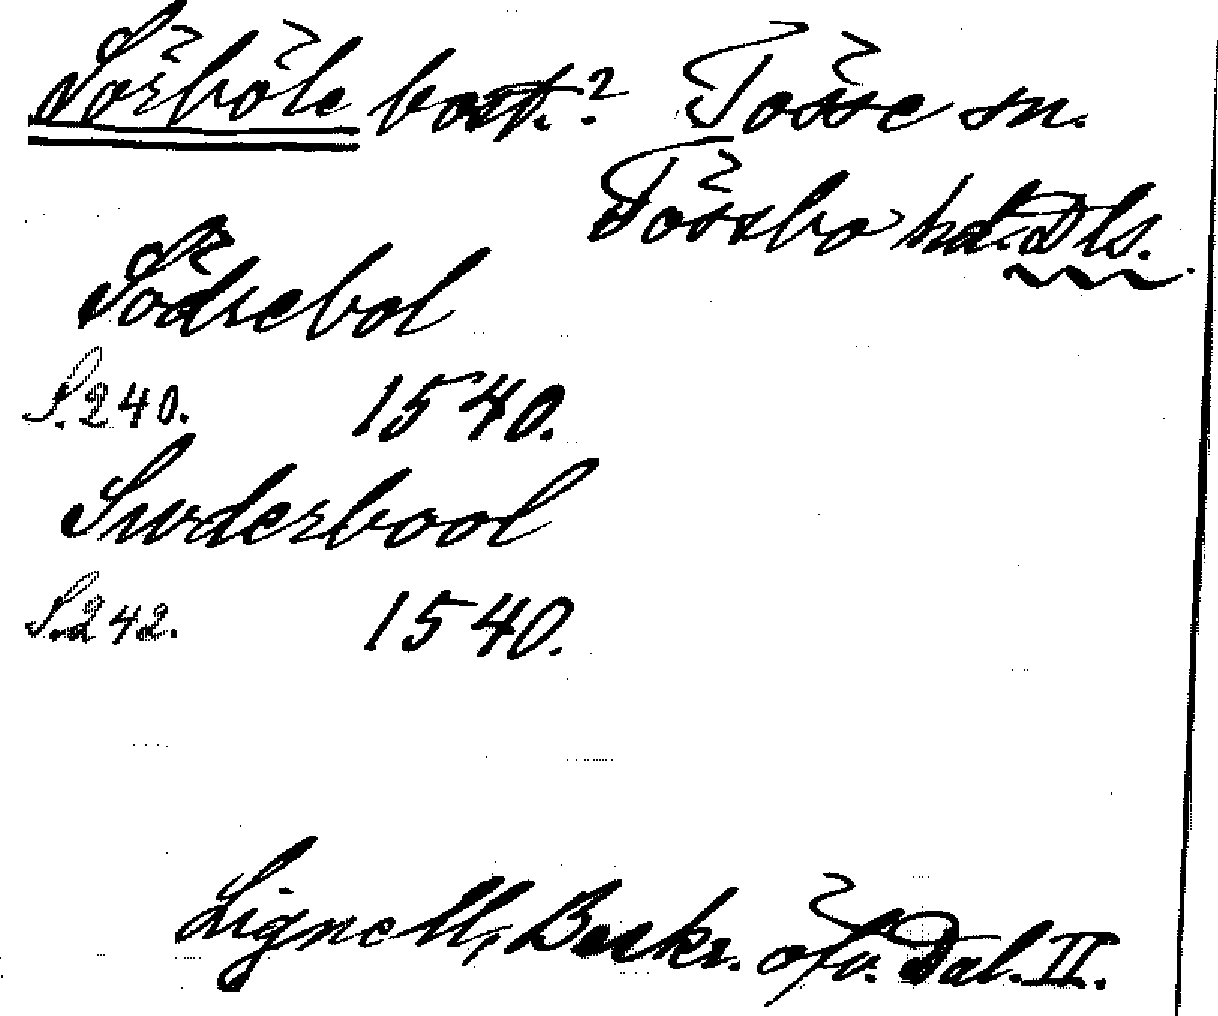 Sörböle bort.? Tösse sn.
Tössbo hd. Dls.
Södrebol
S. 240. 1540.
Surderbool
S. 242. 1540.
Lignell, Beskr. öfv. Dal. II.